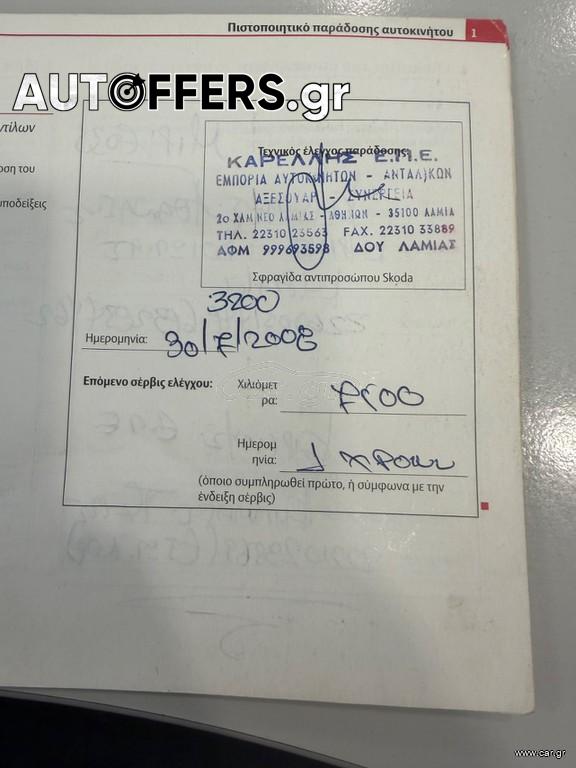 Πιστοποιητικό παράδοσης αυτοκινήτου 1
AUTOFFERS.gr
ντίλων
οση του
υποδείξεις
Τεχνικός έλεγχος παράδοσης:
ΚΑΡΕΛΛΗΣ Ε.Π.Ε.
ΕΜΠΟΡΙΑ ΑΥΤΟΚΙΝΗΤΩΝ - ΑΝΤΑΛ/ΚΩΝ
ΑΞΕΣΟΥΑΡ - ΣΥΝΕΡΓΕΙΑ
2ο ΧΛΜ ΝΕΟ ΛΑΜΙΑΣ - ΑΘΗΝΩΝ - 35100 ΛΑΜΙΑ
ΤΗΛ. 22310 23563 FAX. 22310 33889
ΑΦΜ 999693598 ΔΟΥ ΛΑΜΙΑΣ
Σφραγίδα αντιπροσώπου Skoda
3200
Ημερομηνία: 30/7/2008
Επόμενο σέρβις ελέγχου: Χιλιόμετ
ρα:
Ημερομ
ηνία: 1 χρονου
(όποιο συμπληρωθεί πρώτο, ή σύμφωνα με την
ένδειξη σέρβις)
www.car.gr